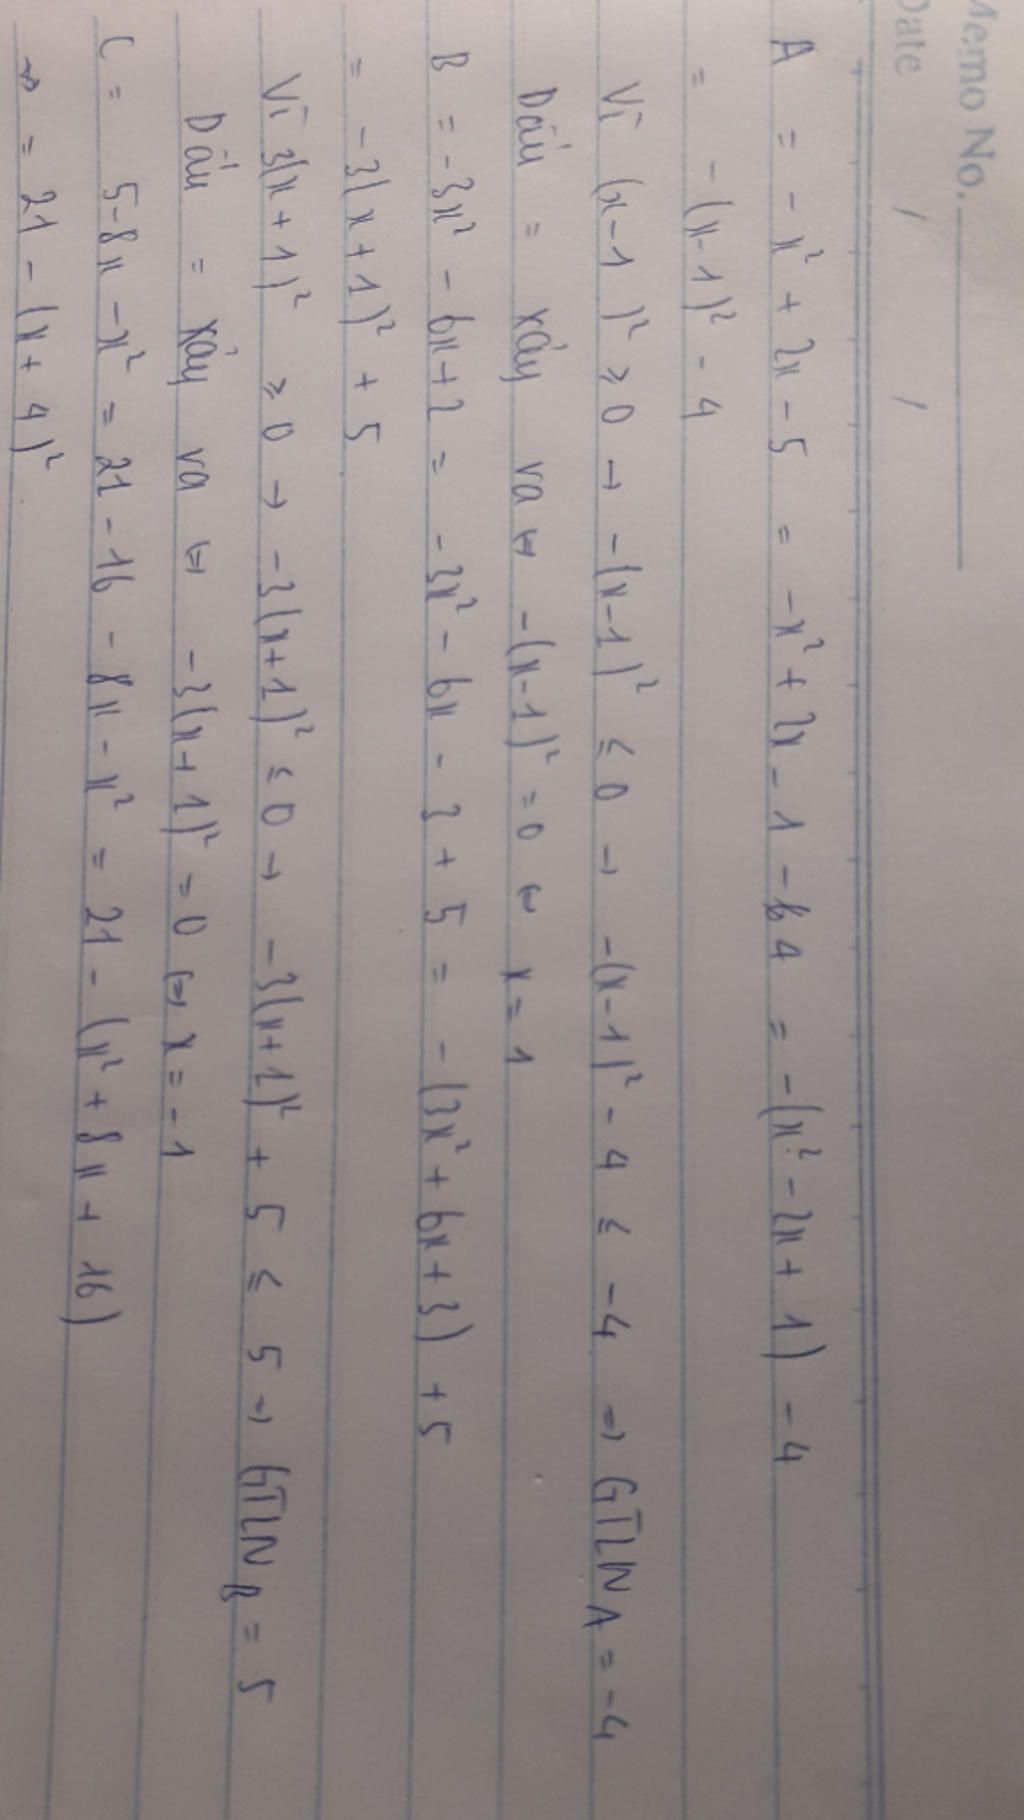 Memo No.
Date / /
A = -x² + 2x - 5 = -x² + 2x - 1 - 4 = -(x² - 2x + 1) - 4
= -(x-1)² - 4
Vì (x-1)² ≥ 0 → -(x-1)² ≤ 0 → -(x-1)² - 4 ≤ -4 ⇒ GTLN A = -4
Dấu = xảy ra ⇔ -(x-1)² = 0 ⇔ x = 1
B = -3x² - 6x + 2 = -3x² - 6x - 3 + 5 = -(3x² + 6x + 3) + 5
= -3(x+1)² + 5
Vì 3(x+1)² ≥ 0 → -3(x+1)² ≤ 0 → -3(x+1)² + 5 ≤ 5 ⇒ GTLN B = 5
Dấu = xảy ra ⇔ -3(x+1)² = 0 ⇔ x = -1
C = 5 - 8x - x² = 21 - 16 - 8x - x² = 21 - (x² + 8x + 16)
⇒ = 21 - (x+4)²